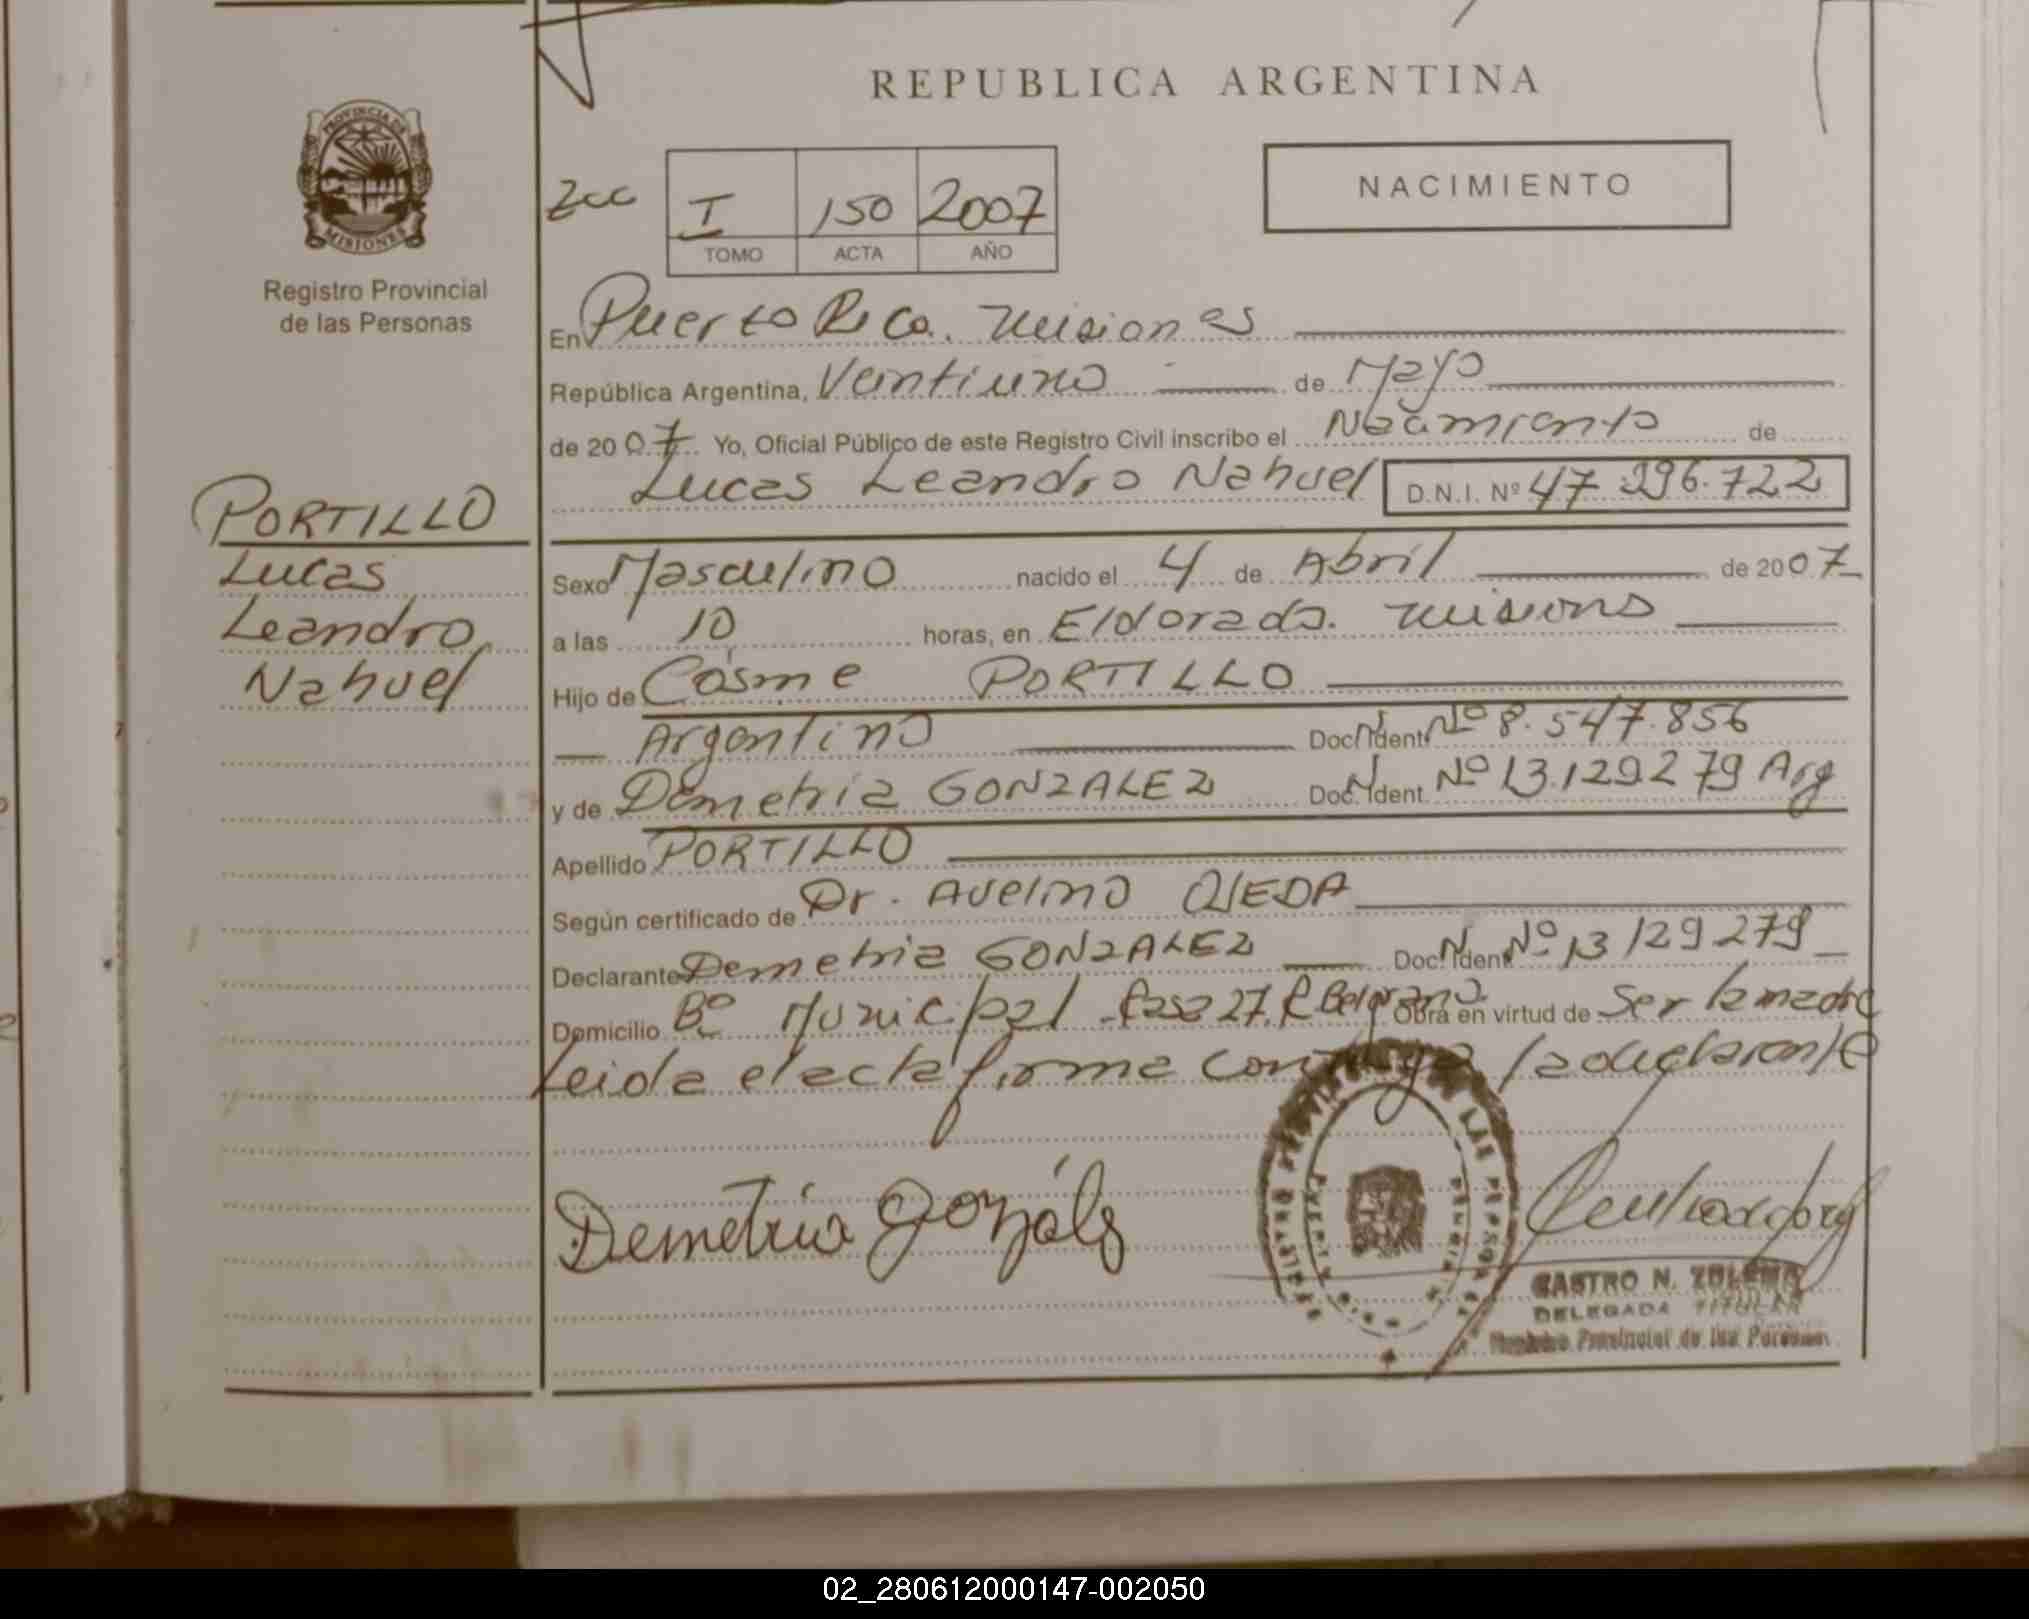 REPUBLICA ARGENTINA
PROVINCIA DE
MISIONES
Registro Provincial
de las Personas
NACIMIENTO
I 150 2007
TOMO ACTA AÑO
En Puerto Rico. Misiones
República Argentina, Veintiuno de Mayo
de 2007. Yo, Oficial Público de este Registro Civil inscribo el Nacimiento de
Lucas Leandro Nahuel D.N.I. Nº 47.996.722
PORTILLO
Lucas
Leandro
Nahuel
Sexo Masculino nacido el 4 de Abril de 2007
a las 10 horas, en Eldorado. Misiones
Hijo de Cosme PORTILLO
Argentino Doc. Ident. Nº 8.547.856
y de Demetria GONZALEZ Doc. Ident. Nº 13.129279 Arg
Apellido PORTILLO
Según certificado de Dr. Avelino OJEDA
Declarante Demetria GONZALEZ Doc. Ident. Nº 13129279
Domicilio Bº Municipal Casa 27. P. Belgrano. Obra en virtud de Ser la madre
Leida el acta firma conmigo la declarante
Demetria Gonzáles
CASTRO N. ZULEMA
DELEGADA TITULAR
Registro Provincial de las Personas
02_280612000147-002050